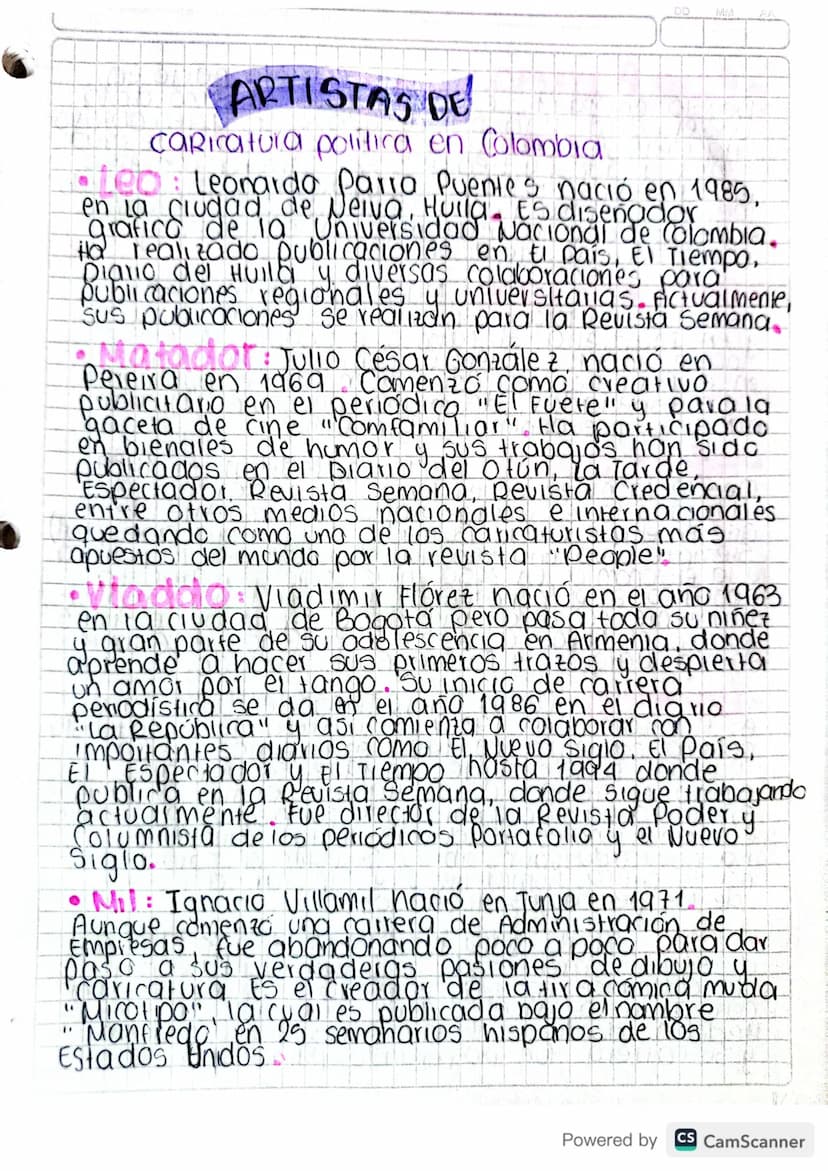 DD MM AA
ARTISTAS DE
caricatura política en Colombia
• Leo: Leonardo Parra Puentes nació en 1985,
en la ciudad de Neiva, Huila. Es diseñador
gráfico de la Universidad Nacional de Colombia.
Ha realizado publicaciones en El País, El Tiempo,
Diario del Huila y diversas colaboraciones para
publicaciones regionales y universitarias. Actualmente,
sus publicaciones se realizan para la Revista Semana.
• Matador: Julio César González nació en
Pereira en 1969. Comenzó como creativo
publicitario en el periódico "El Fuete" y para la
gaceta de cine "Comfamiliar". Ha participado
en bienales de humor y sus trabajos han sido
publicados en el Diario del Otún, La Tarde,
Espectador, Revista Semana, Revista Credencial,
entre otros medios nacionales e internacionales
quedando como uno de los caricaturistas más
apuestos del mundo por la revista "People".
• Vladdo: Vladimir Flórez nació en el año 1963
en la ciudad de Bogotá pero pasa toda su niñez
y gran parte de su adolescencia en Armenia, donde
aprende a hacer sus primeros trazos y despierta
un amor por el tango. Su inicio de carrera
periodística se da en el año 1986 en el diario
"La República" y así comienza a colaborar con
importantes diarios como El Nuevo Siglo, El País,
El Espectador y El Tiempo hasta 1994 donde
publica en la Revista Semana, donde sigue trabajando
actualmente. Fue director de la Revista Poder y
Columnista de los periódicos Portafolio y el Nuevo
Siglo.
• Mil: Ignacio Villamil nació en Tunja en 1971.
Aunque comenzó una carrera de Administración de
Empresas, fue abandonando poco a poco para dar
paso a sus verdaderas pasiones de dibujo y
caricatura Es el creador de la tira cómica muda
"Micolpo", la cual es publicada bajo el nombre
"Monfredo" en 25 semanarios hispanos de los
Estados Unidos.
Powered by CS CamScanner